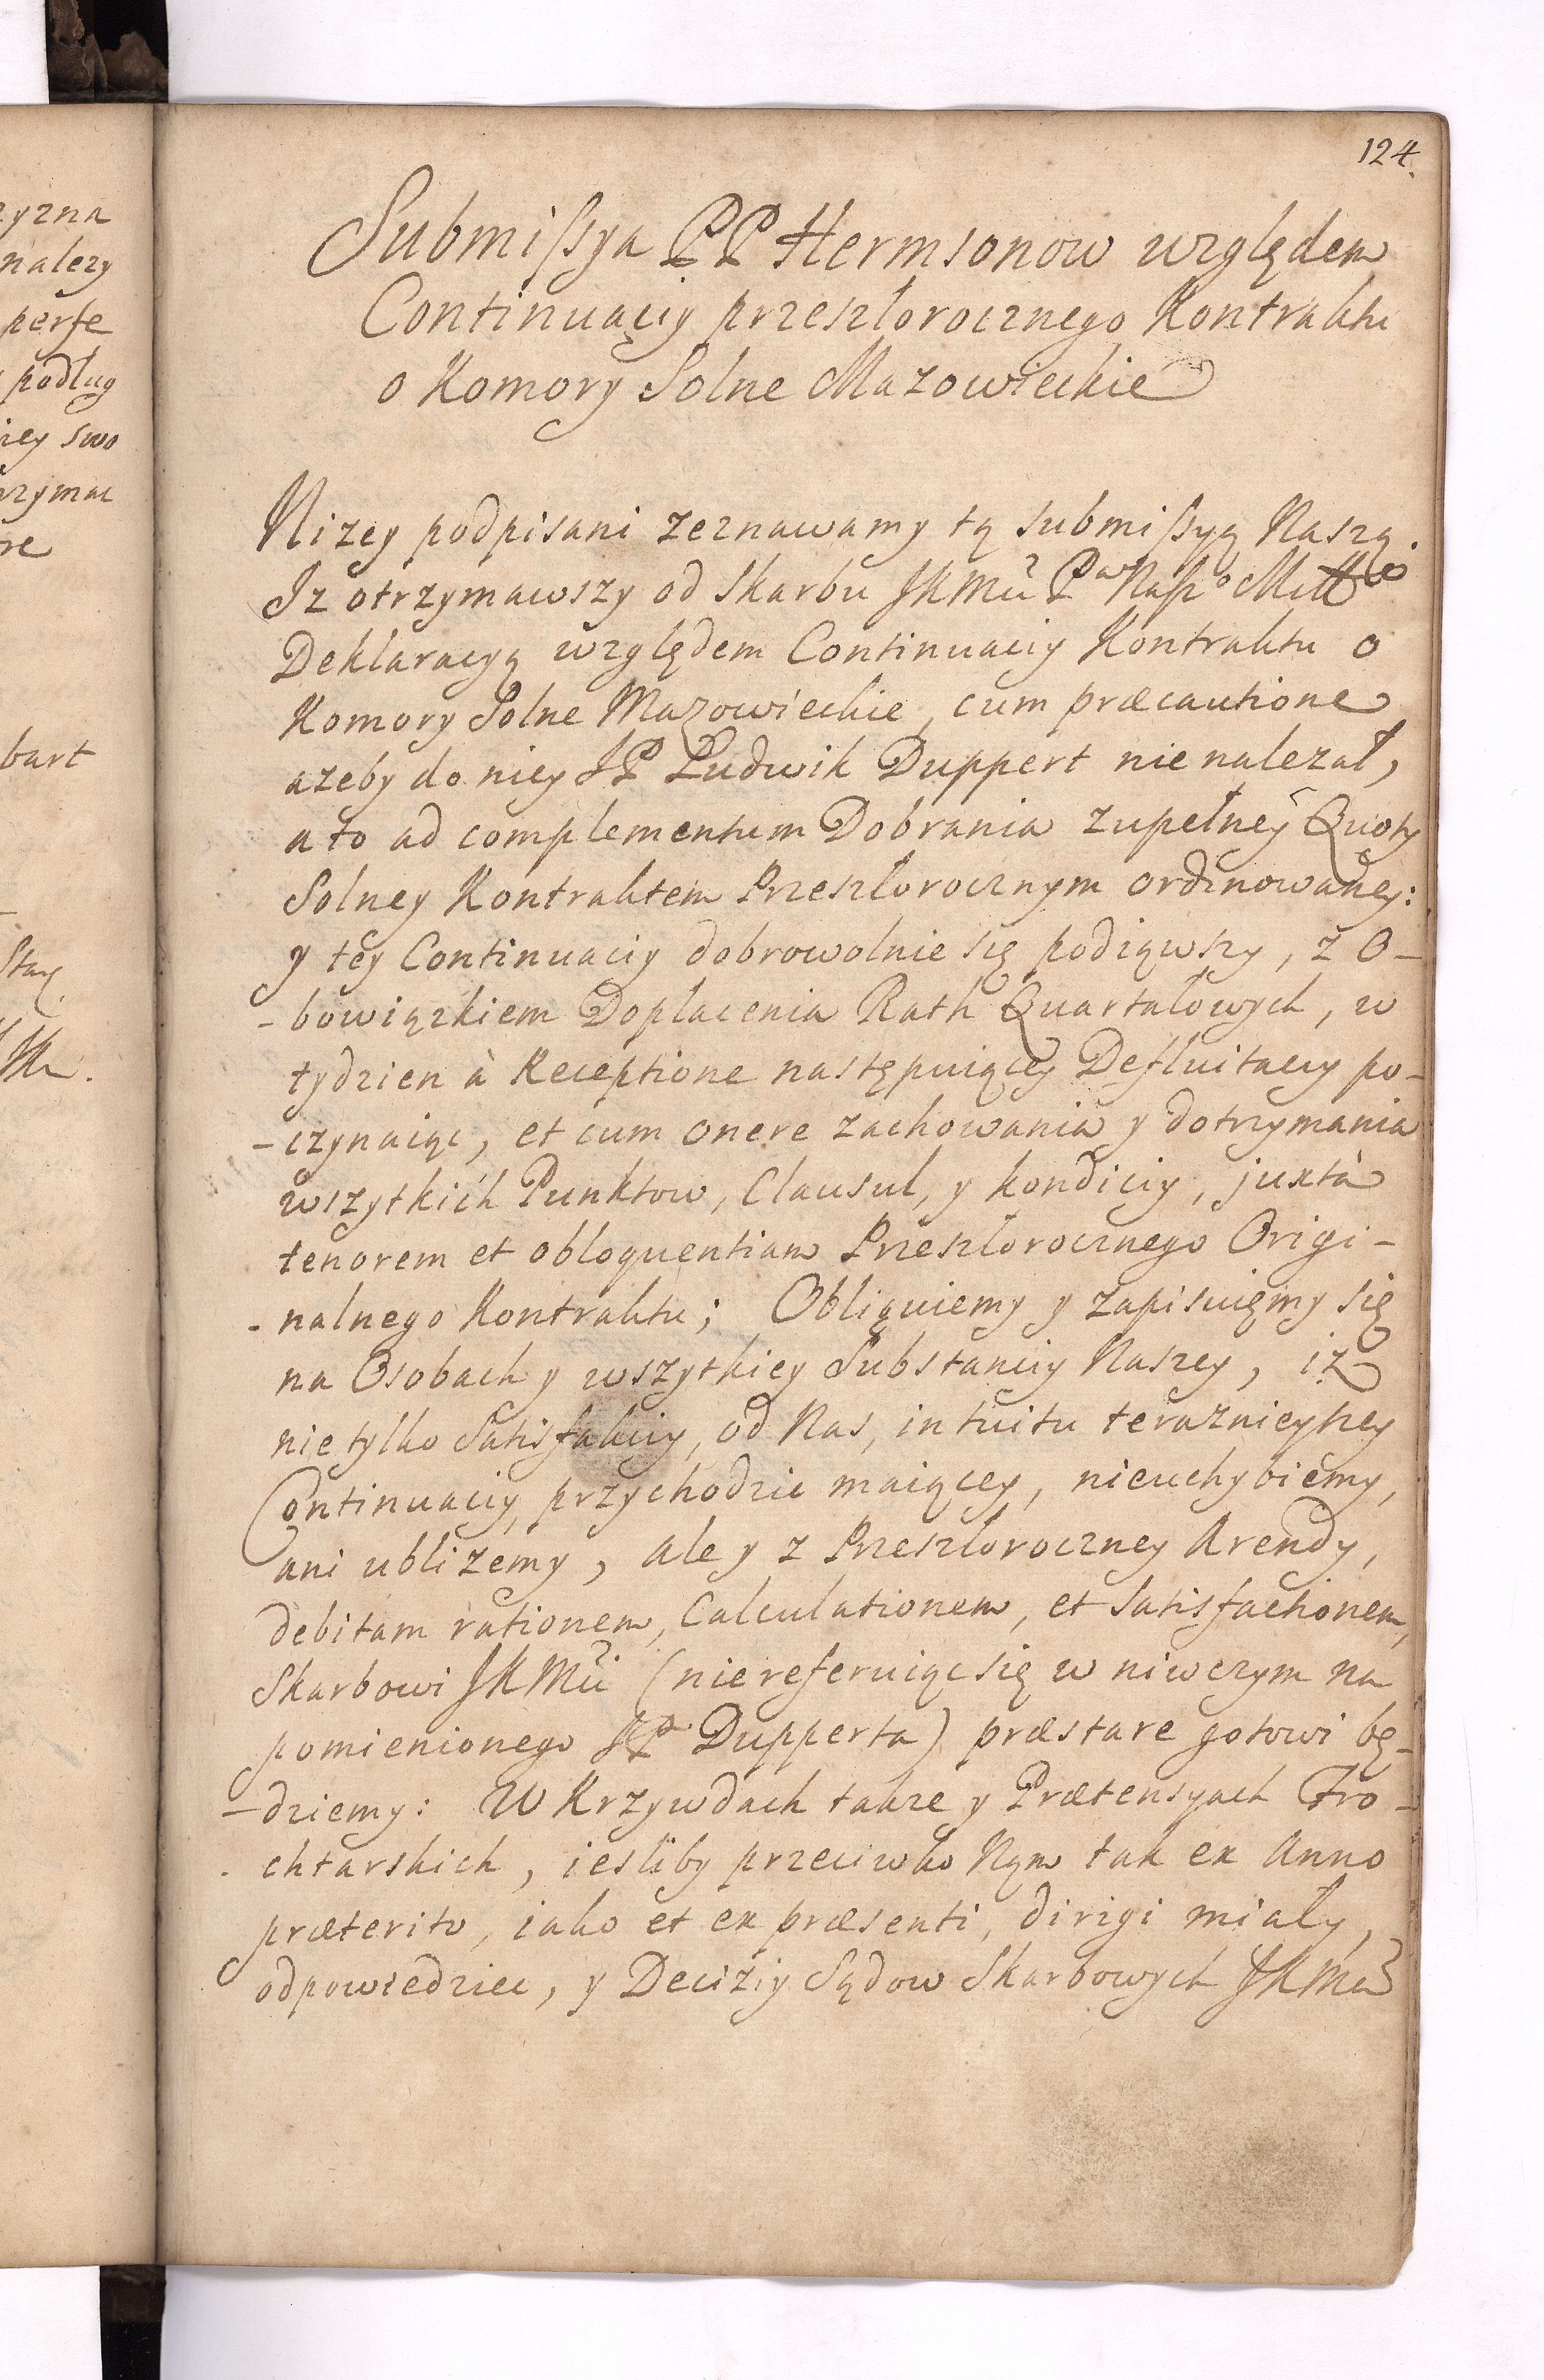 124.
Submissya PP Hermsonow względem
Continuąciy przeszłorocznego Kontraktu
o Komory Solne Mazowieckie
Nizey podpisani zeznawamy tą submissyą Naszą.
Iz otrzymawszy od Skarbu JKMci Pa Nasso Mttgo
Deklaracyą względem Continuaciy Kontraktu o
Komory Solne Mazowieckie, cum præcautione
azeby do niey JP Ludwik Duppert nie nalezał,
a to ad complementum Dobrania zupełney Quoty
Solney Kontraktem Przeszłorocznym ordinowaney:
y tey Continuaciy dobrowolnie się podiąwszy, z O-
-bowiązkiem Dopłacenia Rath Quartałowych, w
tydzien à Receptione następuiącey Defluitacyy po-
-czynaiąc, et cum onere zachowania y dotrzymania
wszytkich Punktow, Clausul, y kondiciy, juxtà
tenorem et obloquentiam Przeszłorocznego Origi-
-nalnego Kontraktu; Obliguiemy y zapisuięmy się
na Osobach y wszytkiey Substanciy Naszey, iz
nie tylko Satisfakciy, od Nas, intuitu teraznieyszey
Continuaciy, przychodzic maiącey, nieuchybiemy,
ani ublizemy, ale y z Przeszłoroczney Arendy,
debitam rationem, Calculationem, et Satisfactionem,
Skarbowi JKMci (niereferuiąc się w niwczym na
pomienionego JP Dupperta) præstare gotowi bę-
-dziemy: W Krzywdach takze y Prætensyach Fro-
-chtarskich, iesliby przeciwko Nąm tak ex Anno
præterito, iako et ex præsenti, dirigi miały,
odpowiedziec, y Deciziy Sądow Skarbowych JKMci
yzna
nalezy
perfe
podlug
iey swo
rzymac
re
bart